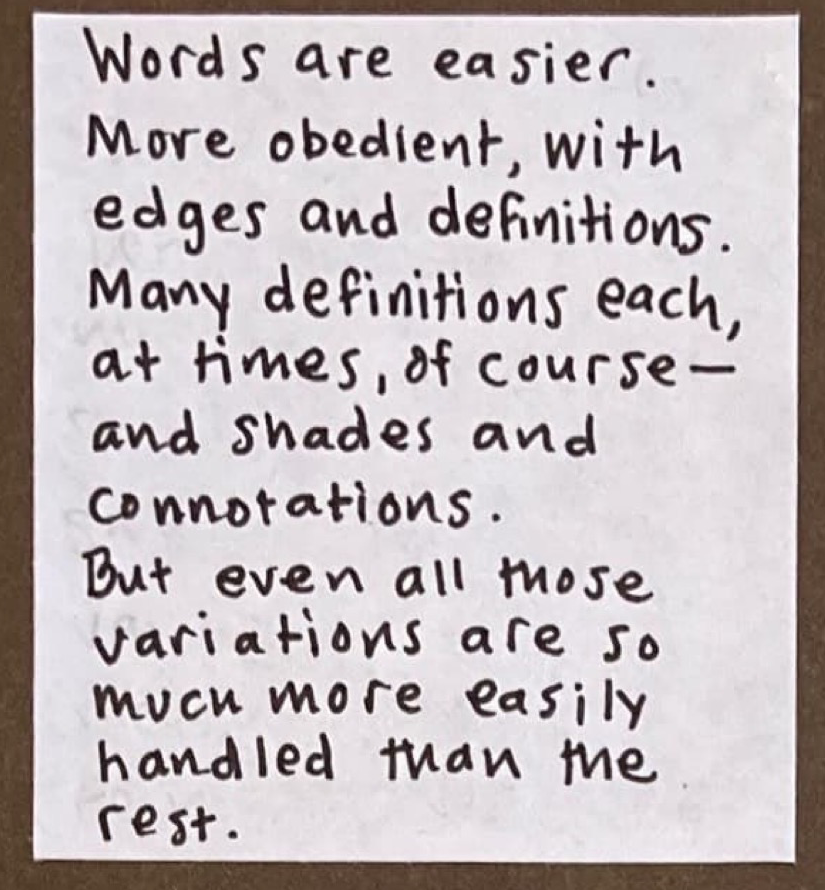 Words are easier.
More obedient, with
edges and definitions.
Many definitions each,
at times, of course—
and shades and
connotations.
But even all those
variations are so
much more easily
handled than the
rest.